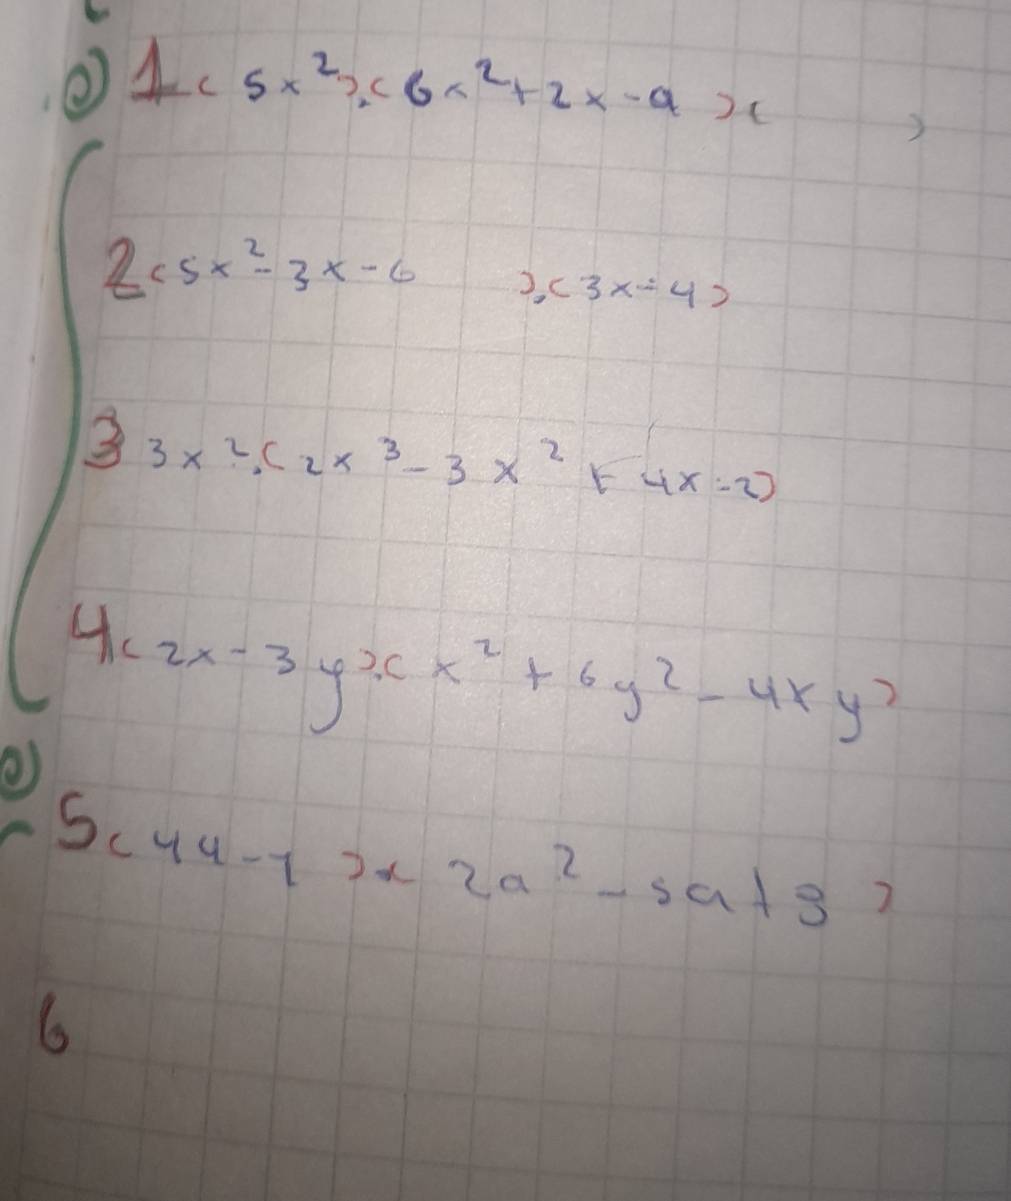 1 ( 5x²).(6x²+2x-9 )( )
2 (5x²-3x-6 ).(3x-4)
3 3x².(2x³-3x²+4x-2)
4 (2x-3y).(x²+6y²-4xy)
5 (44-1).(2a²-5a+3)
6